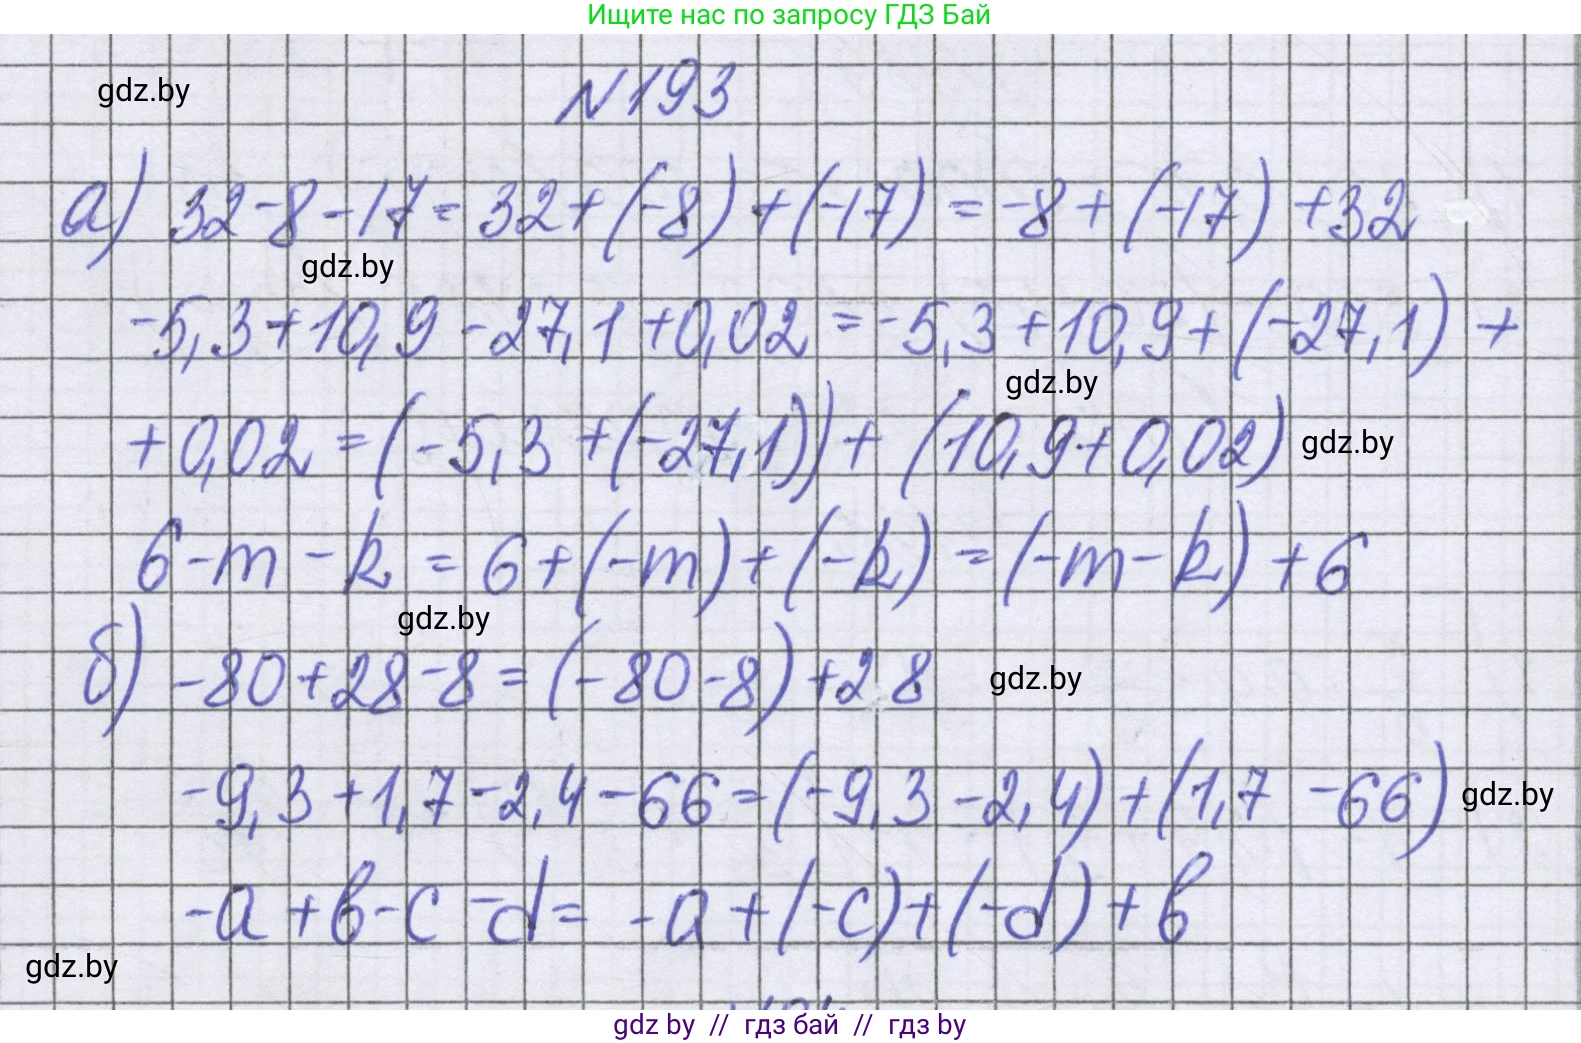 Ищите нас по запросу ГДЗ Бай
gdz.by
N193
а) 32-8-17=32+(-8)+(-17)=-8+(-17)+32
gdz.by
-5,3+10,9-27,1+0,02=-5,3+10,9+(-27,1)+
gdz.by
+0,02=(-5,3+(-27,1))+(10,9+0,02)
gdz.by
6-m-k=6+(-m)+(-k)=(-m-k)+6
gdz.by
б) -80+28-8=(-80-8)+28
gdz.by
-9,3+1,7-2,4-66=(-9,3-2,4)+(1,7-66)
gdz.by
-a+b-c-d=-a+(-c)+(-d)+b
gdz.by
gdz by // гдз бай // гдз by